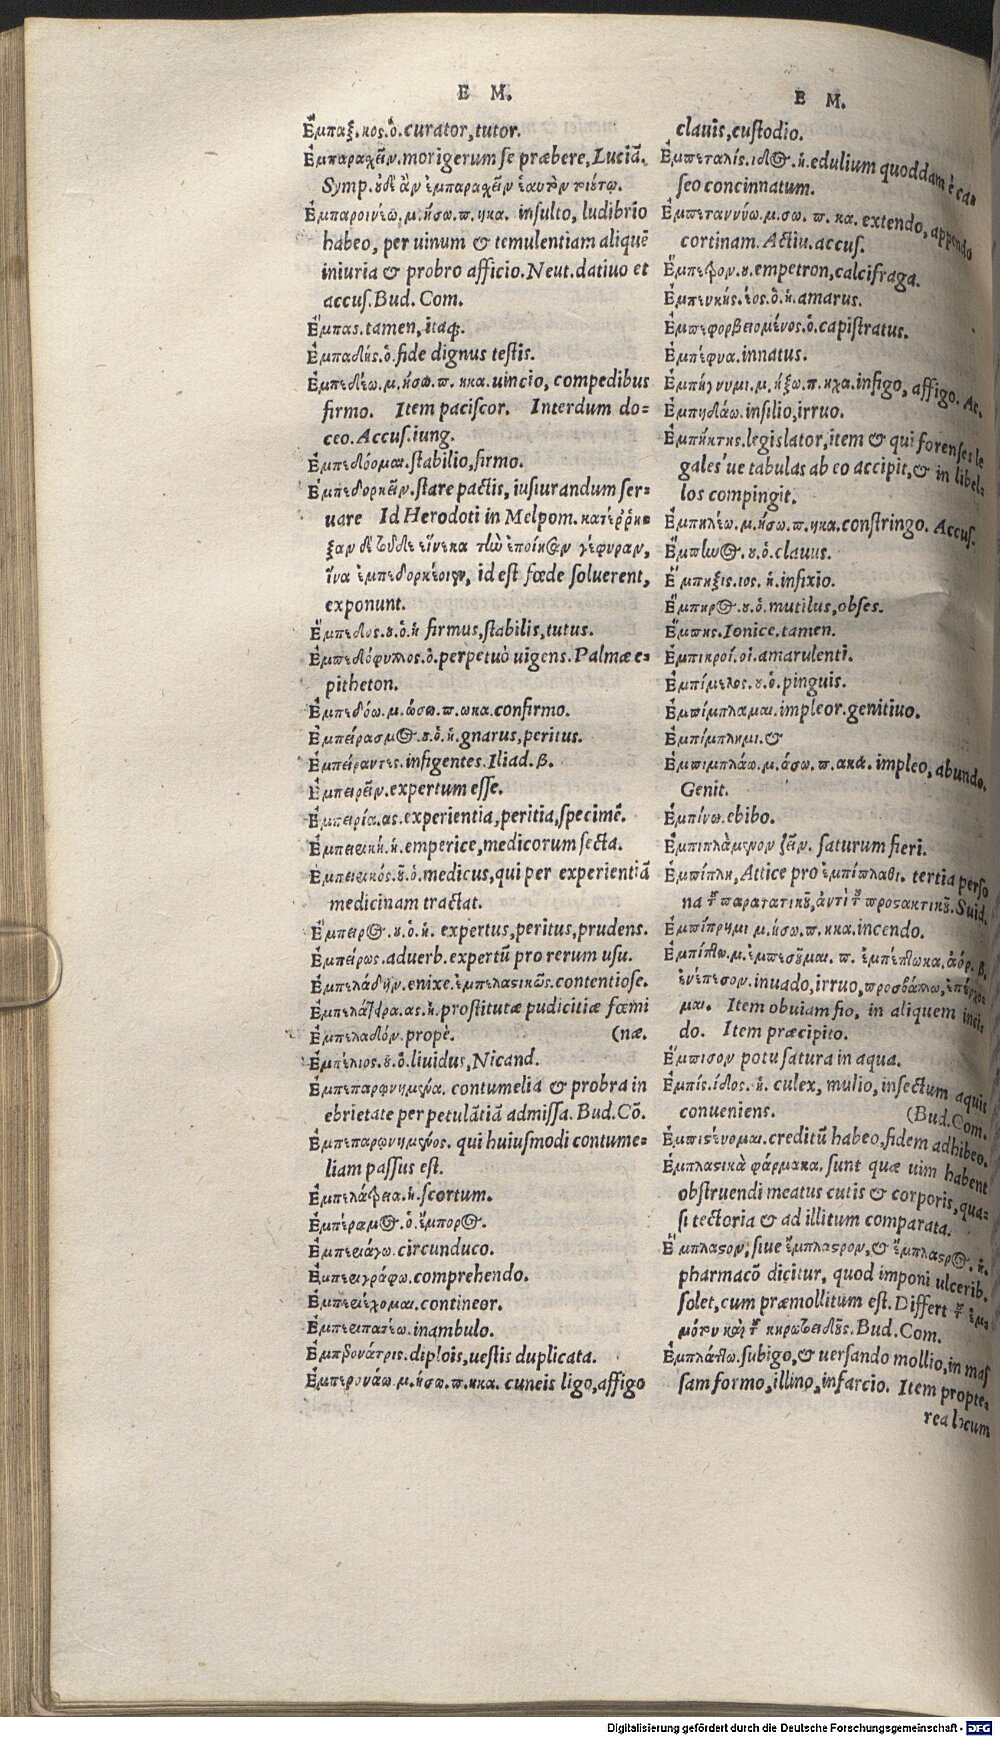 E M.
Ἔμπαξ.κος.ὁ.curator,tutor.
Ἐμπαραχεῖν.morigerum se præbere, Luciā.
Symp.οὐδ' ἂν ἐμπαραχεῖν ἑαυτὸν τούτῳ.
Ἐμπαροινέω.μ.ήσω.π.ηκα. insulto, ludibrio
habeo, per uinum & temulentiam aliquē
iniuria & probro afficio. Neut.datiuo et
accus. Bud. Com.
Ἔμπας.tamen, itaq;.
Ἐμπαδής.ὁ.fide dignus testis.
Ἐμπεδέω.μ.ήσω.π.ηκα.uincio, compedibus
firmo. Item paciscor. Interdum do=
ceo. Accus.iung.
Ἐμπεδόομαι.stabilio, firmo.
Ἐμπεδορκεῖν.stare pactis, iusiurandum ser=
uare Id Herodoti in Melpom. κατέῤῥη=
ξαν δὲ οὐδὲ εἵνεκα τὴν ἐποίησαν γέφυραν,
ἵνα ἐμπεδορκέοιεν, id est fœde soluerent,
exponunt.
Ἔμπεδος.ου.ὁ.ἡ firmus, stabilis, tutus.
Ἐμπεδόφυλλος.ὁ.perpetuò uigens. Palmæ e=
pitheton.
Ἐμπεδόω.μ.ώσω.π.ωκα.confirmo.
Ἐμπείρασμος.ου.ὁ.ἡ.gnarus, peritus.
Ἐμπείραντες.infigentes. Iliad.β.
Ἐμπειρεῖν.expertum esse.
Ἐμπειρία.ας.experientia, peritia, specimē.
Ἐμπειρική.ἡ.emperice, medicorum secta.
Ἐμπειρικός.οῦ.ὁ.medicus, qui per experientiā
medicinam tractat.
Ἔμπειρος.ου.ὁ.ἡ. expertus, peritus, prudens.
Ἐμπείρως.aduerb. expertū pro rerum usu.
Ἐμπελάδην.enixe. ἐμπελαστικῶς.contentiose.
Ἐμπελάτειρα.ας.ἡ.prostitutæ pudicitiæ fœmi
Ἐμπελαδόν.propè. (næ.
Ἐμπέλιος.ου.ὁ.liuidus, Nicand.
Ἐμπεπαρῳνημένα. contumelia & probra in
ebrietate per petulātiā admissa. Bud. Cō.
Ἐμπεπαρῳνημένος. qui huiusmodi contume=
liam passus est.
Ἐμπελάτρεια.ἡ.scortum.
Ἐμπέραμος.ὁ.ἔμπορος.
Ἐμπεριάγω.circunduco.
Ἐμπεριγράφω.comprehendo.
Ἐμπεριέχομαι.contineor.
Ἐμπεριπατέω.inambulo.
Ἐμπερονάτρις.diplois, uestis duplicata.
Ἐμπερονάω.μ.ήσω.π.ηκα. cuneis ligo, affigo
E M.
clauis, custodio.
Ἐμπεταλίς.ιδος.ἡ.edulium quoddam è ca=
seo concinnatum.
Ἐμπεταννύω.μ.σω. π. κα. extendo, appendo
cortinam. Actiu. accus.
Ἔμπετρον.ου.empetron, calcifraga.
Ἐμπευκής.έος.ὁ.ἡ.amarus.
Ἐμπεφορβειομένος.ὁ.capistratus.
Ἐμπέφυα.innatus.
Ἐμπήγνυμι.μ.ήξω.π.ηχα.infigo, affigo. Ac.
Ἐμπηδάω.insilio, irruo.
Ἐμπήκτης.legislator, item & qui forenses le
gales'ue tabulas ab eo accipit, & in libel=
los compingit.
Ἐμπηλέω.μ.ήσω.π.ηκα.constringo. Accus.
Ἔμπηνος.ου.ὁ.clauus.
Ἔμπηξις.ιος.ἡ.infixio.
Ἔμπηρος.ου.ὁ.mutilus, obses.
Ἔμπης. Ionice. tamen.
Ἐμπικροί.οἱ.amarulenti.
Ἐμπίμελος.ου.ὁ.pinguis.
Ἐμπίμπλαμαι.impleor.genitiuo.
Ἐμπίμπλημι.&
Ἐμπιμπλάω.μ.άσω.π.ακα. impleo, abundo.
Genit.
Ἐμπίνω.ebibo.
Ἐμπιπλάμενον ξεῖν. saturum fieri.
Ἐμπίπλη, Attice pro ἐμπίπλαθι. tertia perso
na τοῦ παρατατικοῦ, ἀντὶ τοῦ προστακτικοῦ. Suid.
Ἐμπίπρημι μ.ήσω.π.ηκα.incendo.
Ἐμπίπτω.μ.ἐμπεσοῦμαι. π. ἐμπέπτωκα.ἀόρ.β.
ἐνέπεσον.inuado, irruo, προσβάλλω, ἐπέρχο=
μαι. Item obuiam fio, in aliquem inci=
do. Item præcipito.
Ἔμπισον potu satura in aqua.
Ἐμπίς.ίδος. ἡ. culex, mulio, insectum aquis
conueniens. (Bud. Com.
Ἐμπιστεύομαι.creditū habeo, fidem adhibeo.
Ἐμπλαστικὰ φάρμακα. sunt quæ uim habent
obstruendi meatus cutis & corporis, qua=
si tectoria & ad illitum comparata.
Ἔμπλαστον, siue ἔμπλαστρον, & ἔμπλαστρος. ἡ.
pharmacō dicitur, quod imponi ulcerib.
solet, cum præmollitum est. Differt τοῦ ἐμ=
μότου καὶ τοῦ κηρωτειδοῦς. Bud. Com.
Ἐμπλάττω.subigo, & uersando mollio, in mas
sam formo, illino, infarcio. Item propte=
rea locum
Digitalisierung gefördert durch die Deutsche Forschungsgemeinschaft - DFG